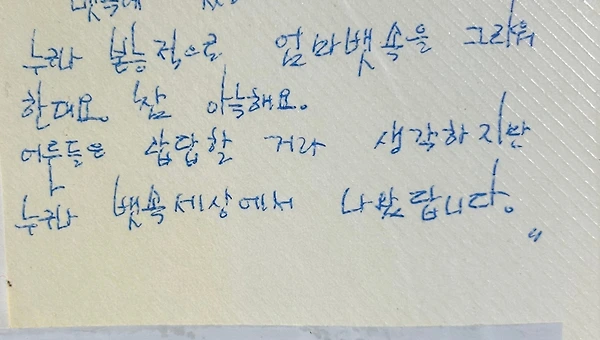 뱃속에
누구나 본능적으로 엄마뱃속을 그리워
한대요. 참 아늑해요.
어른들은 갑답할 거라 생각하지만
누구나 뱃속세상에서 나왔답니다.
"